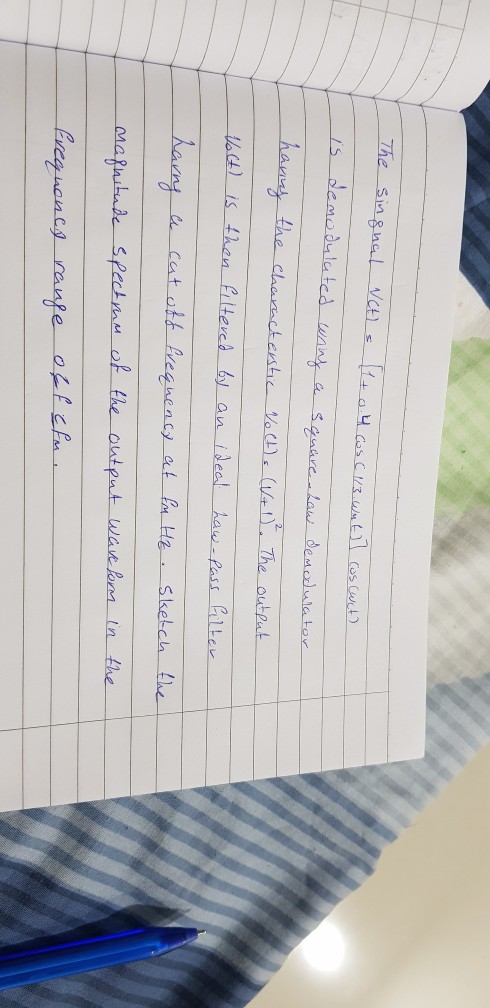 The singnal V(t) = [1 + 0.4 cos(1/3 ωm t)] cos(ωct)
is demodulated using a square-law demodulator
having the characterstic Vo(t) = (V+1)². The output
Vo(t) is then filtered by an ideal law-pass filter
having a cut off frequency at fm Hz. Sketch the
magnitude spectrum of the output waveform in the
frequency range 0≤f≤fm.